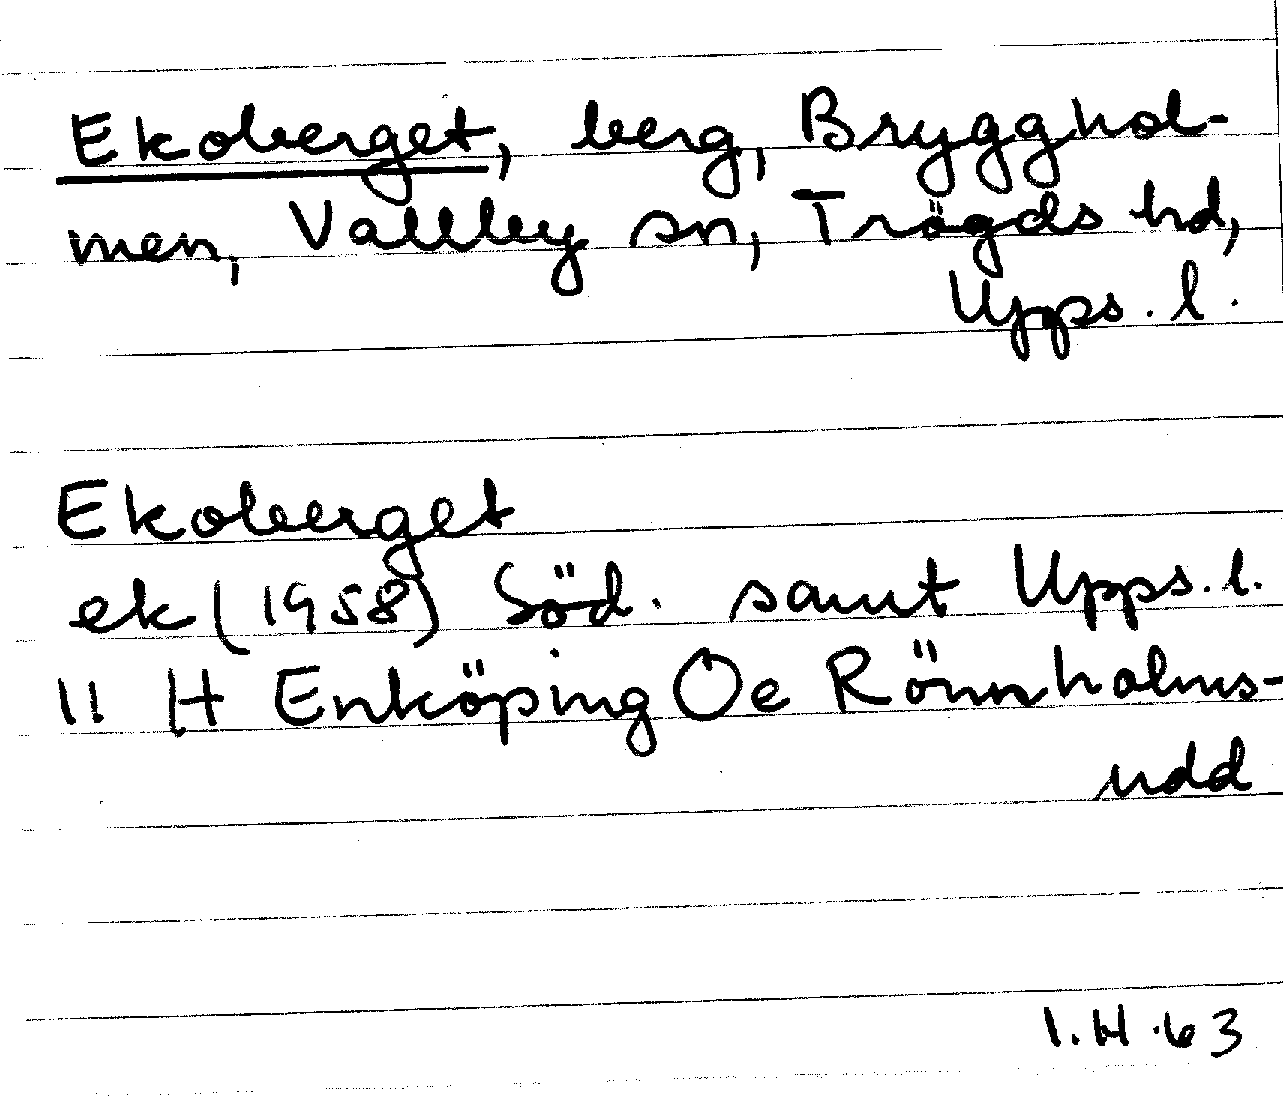 Ekoberget, berg, Brygghol-
men, Vallby sn, Trögds hd,
Upps. l.
Ekoberget
ek (1958) Söd. samt Upps. l.
11 H Enköping Öe Rönnholms-
udd
I. H. 63